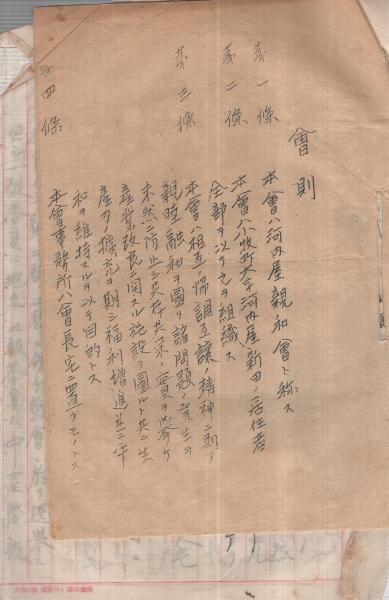 會則
第一條 本會ハ河内屋親和會ト称ス
第二條 本會ハ小牧町大字河内屋新田ノ居住者
全部ヲ以テ之ヲ組織ス
第三條 本會ハ相互ノ協調互讓ノ精神ニ則リ
親睦融和ヲ圖リ諸問題ノ発生ヲ
未然ニ防止シ共存共栄ノ實ヲ挙ケ
産業改良ニ関スル施設ヲ圖ルト共ニ生
産力ノ擴充ヲ期シ福利増進並ニ平
和ヲ維持スルヲ以テ目的トス
第四條 本會事務所ハ會長宅ニ置クモノトス